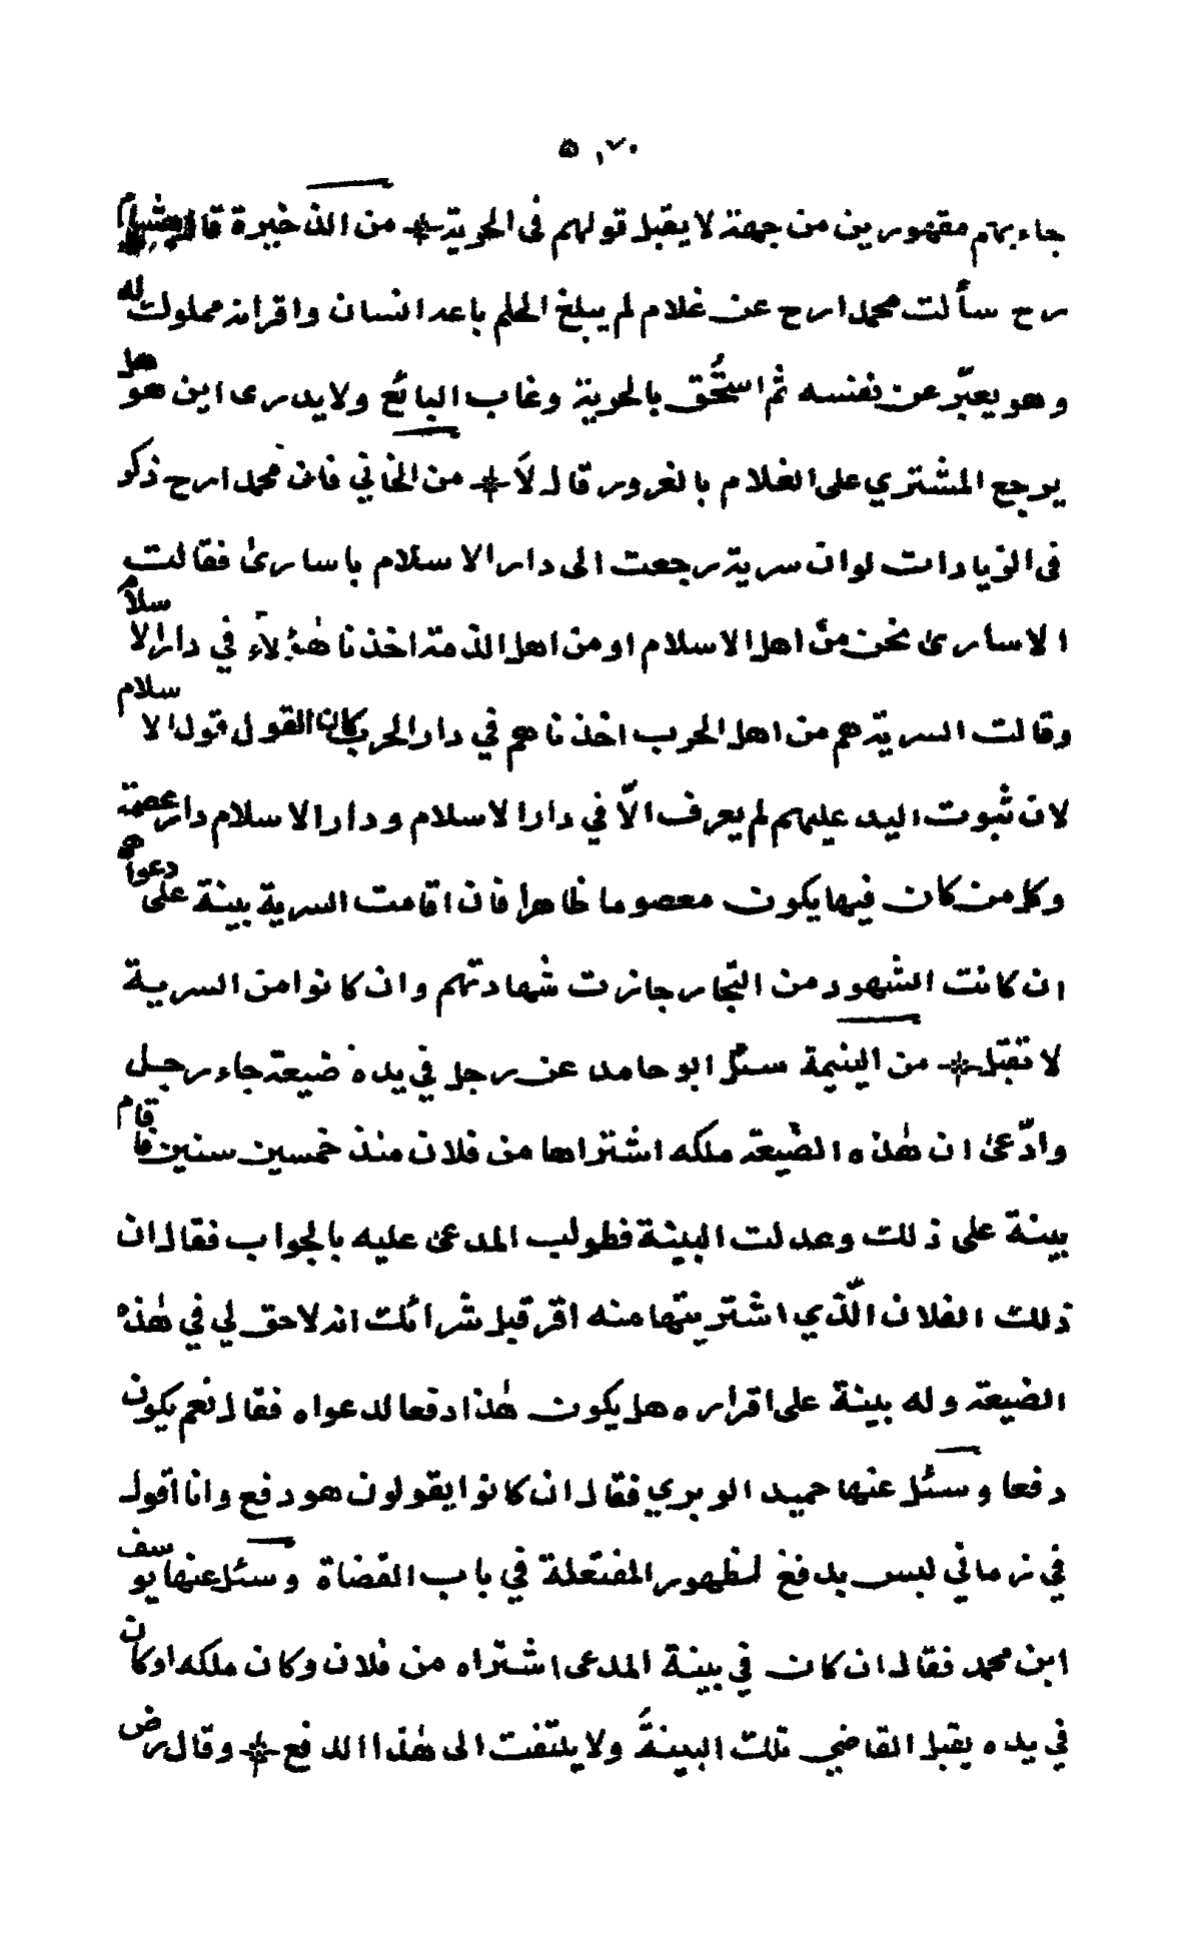 جاء بهم مقهورين من جهة لا يقبل قولهم فى الحرية * من الذخيرة قال هشام
رح سألت محمدا رح عن غلام لم يبلغ الحلم باعه انسان واقر انه مملوك له
وهو يعبّر عن نفسه ثم استُحق بالحرية وغاب البائع ولا يدرى اين هو هل
يرجع المشتري على الغلام بالغرور قال لَا * من الخاني فان محمدا رح ذكر
فى الزيادات لو ان سرية رجعت الى دار الاسلام باسارىٰ فقالت
الاسارىٰ نحن من اهل الاسلام او من اهل الذمة اخذنا هٰؤلآء في دار الاسلام
وقالت السرية هم من اهل الحرب اخذناهم في دار الحرب كان القول قول الاسلام
لان ثبوت اليد عليهم لم يعرف الّا في دار الاسلام ودار الاسلام دار عصمة
وكل من كان فيها يكون معصوما ظاهرا فان اقامت السرية بينة على دعواهم
ان كانت الشهود من التجار جازت شهادتهم وان كانوا من السرية
لا تقبل * من اليتيمة سئل ابو حامد عن رجل في يده ضيعة جاء رجل
وادّعىٰ ان هٰذه الضيعة ملكه اشتراها من فلان منذ خمسين سنين فاقام
بينة على ذلك وعدلت البينة فطولب المدعى عليه بالجواب فقال ان
ذلك الفلان الّذي اشتريتها منه اقر قبل شرائك انه لا حق لي في هٰذه
الضيعة وله بينة على اقراره هل يكون هٰذا دفعا لدعواه فقال نعم يكون
دفعا وسئل عنها حميد الوبري فقال ان كانوا يقولون هو دفع وانا أقول
في زماني ليس بدفع لظهور المفتعلة في باب القضاة وسئل عنها يوسف
ابن محمد فقال ان كان في بينة المدعى اشتراه من فلان وكان ملكه او كان
في يده يقبل القاضي تلك البينةَ ولا يلتفت الى هٰذا الدفع * وقال رض